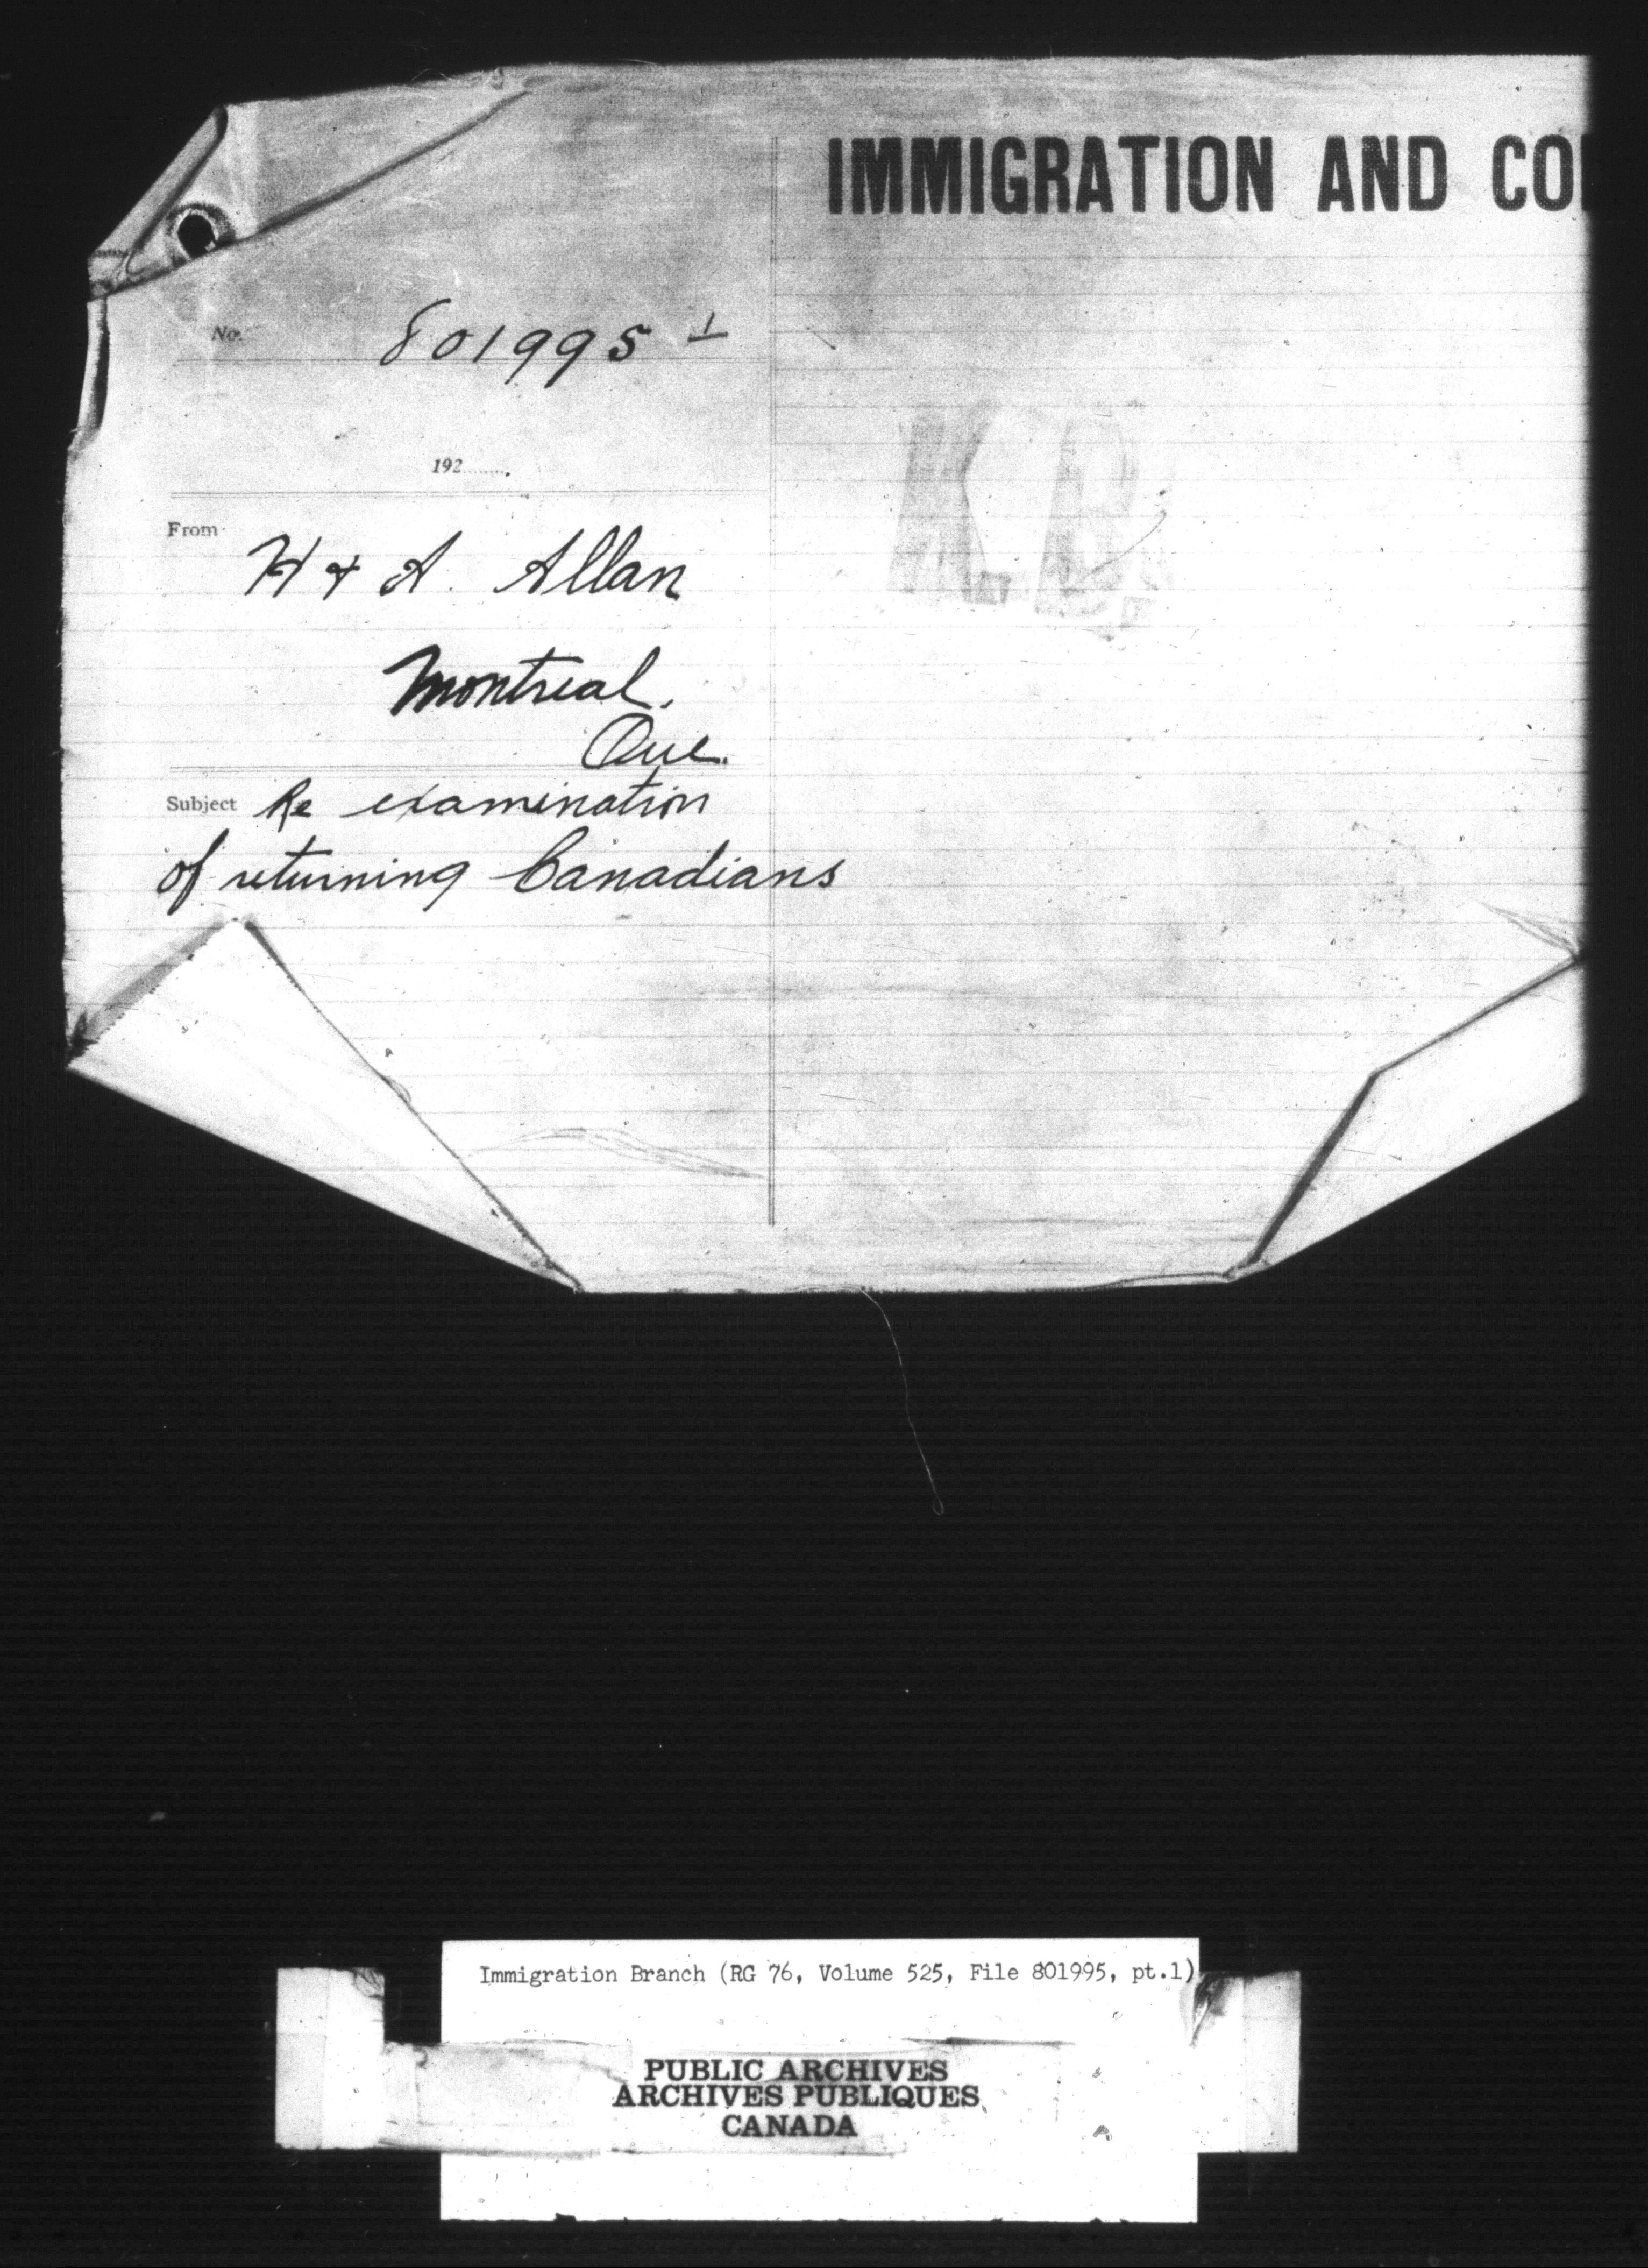 IMMIGRATION AND CO
No. 801995 1
192........
From
H & A. Allan
Montreal.
Que.
Subject Re examination
of returning Canadians
Immigration Branch (RG 76, Volume 525, File 801995, pt.1)
PUBLIC ARCHIVES
ARCHIVES PUBLIQUES
CANADA